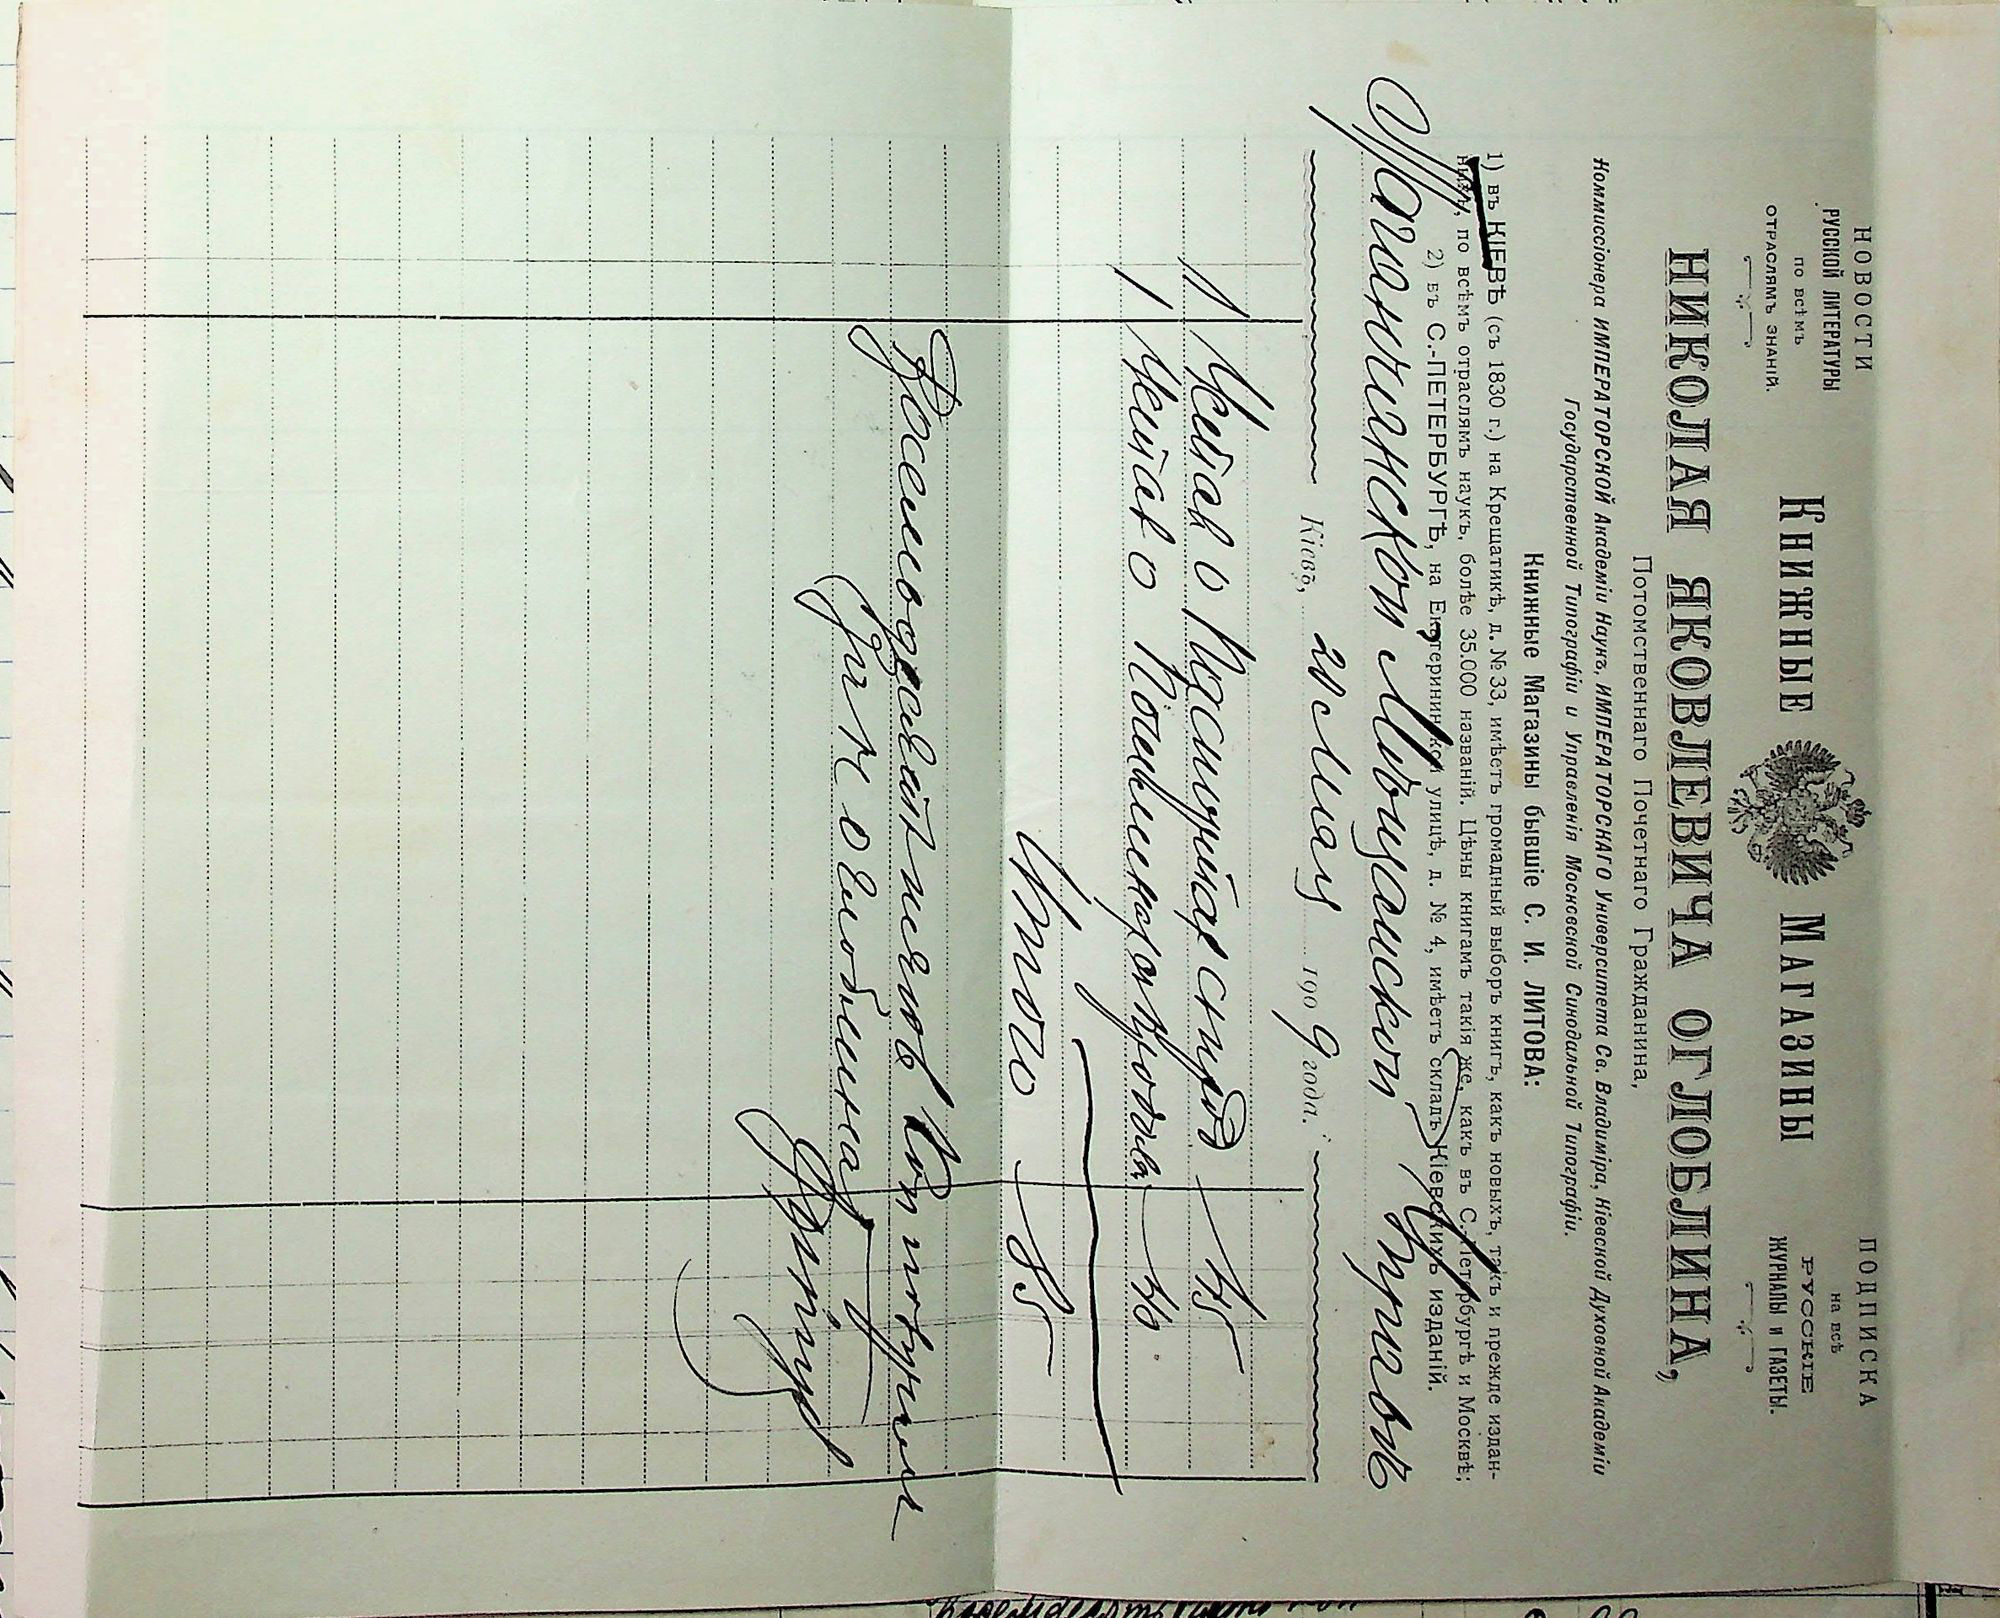 НОВОСТИ
РУССКОЙ ЛИТЕРАТУРЫ
по всѣмъ
ОТРАСЛЯМЪ ЗНАНІЙ.
КНИЖНЫЕ МАГАЗИНЫ
ПОДПИСКА
на всѣ
РУССКІЕ
ЖУРНАЛЫ И ГАЗЕТЫ.
НИКОЛАЯ ЯКОВЛЕВИЧА ОГЛОБЛИНА,
Потомственнаго Почетнаго Гражданина,
Коммиссіонера ИМПЕРАТОРСКОЙ Академіи Наукъ, ИМПЕРАТОРСКАГО Университета Св. Владиміра, Кіевской Духовной Академіи
Государственной Типографіи и Управленія Московской Синодальной Типографіи.
Книжные Магазины бывшіе С. И. ЛИТОВА:
1) въ КІЕВѢ (съ 1830 г.) на Крещатикѣ, д. № 33, имѣетъ громадный выборъ книгъ, какъ новыхъ, такъ и прежде издан-
ныхъ, по всѣмъ отраслямъ наукъ, болѣе 35.000 названій. Цѣны книгамъ такія же, какъ въ С.-Петербургѣ и Москвѣ;
2) въ С.-ПЕТЕРБУРГѢ, на Екатерининской улицѣ, д. № 4, имѣетъ складъ Кіевскихъ изданій.
Мѣщанской Управѣ
Кіевъ, 20 Мая 1909 года.
1 Уставъ о 45
1 Уставъ о 40
Итого 85
Восемьдесятъ пять коп получилъ